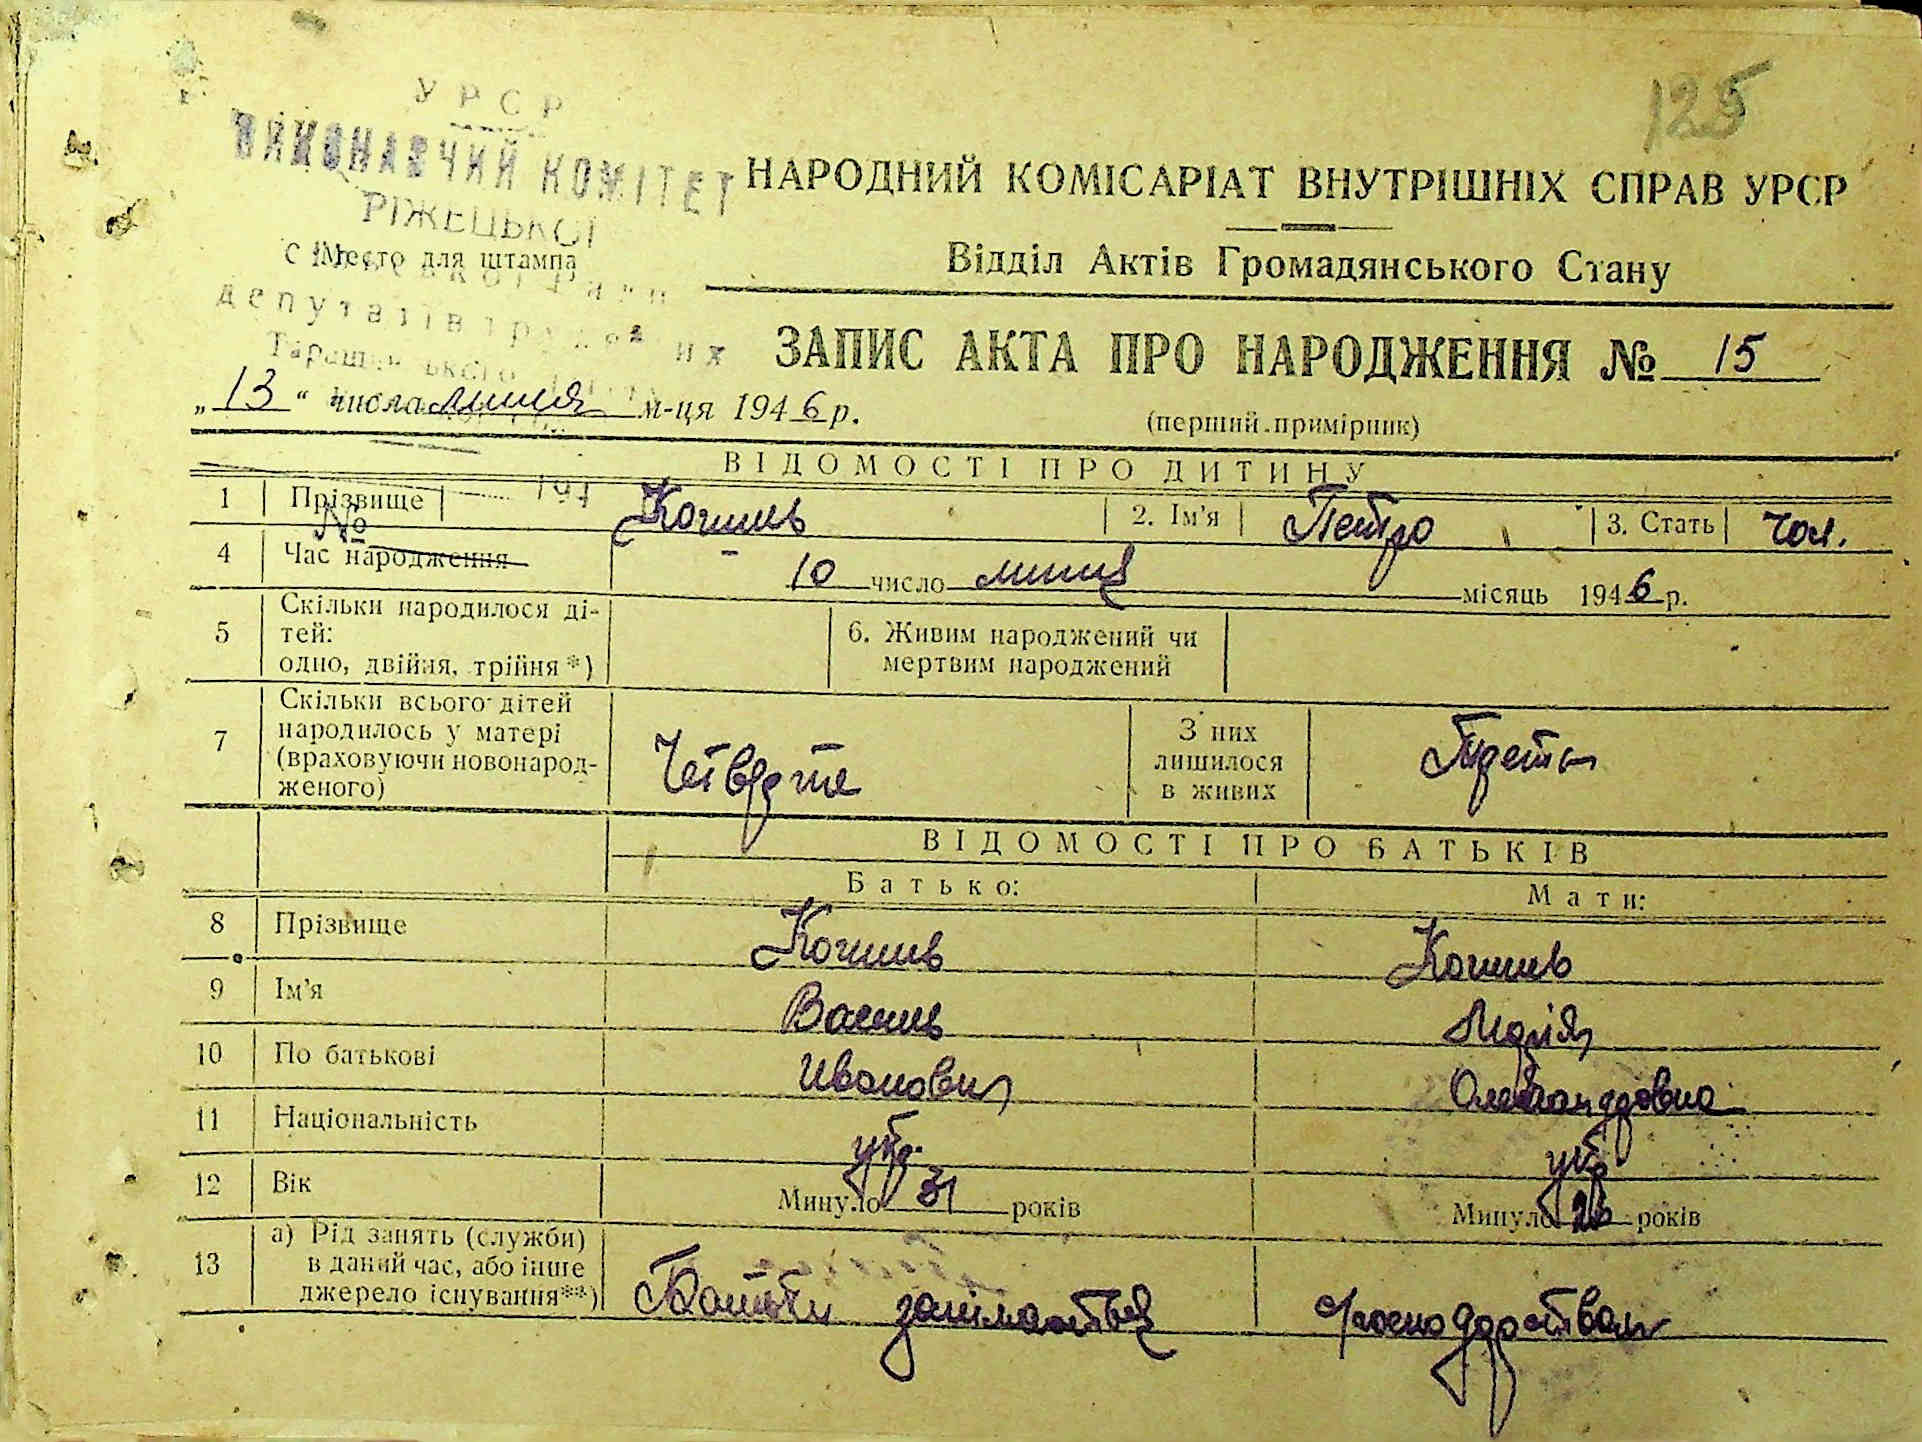 125
УРСР
ВИКОНАВЧИЙ КОМІТЕТ
РІЖЕЦЬКОЇ
Место для штампа
депутатів трудових
НАРОДНИЙ КОМІСАРІАТ ВНУТРІШНІХ СПРАВ УРСР
Відділ Актів Громадянського Стану
ЗАПИС АКТА ПРО НАРОДЖЕННЯ № 15
„13“ числа липця м-ця 1946 р.
(перший примірник)
ВІДОМОСТІ ПРО ДИТИНУ
1 Прізвище 2. Ім'я Петро 3. Стать чол.
№
4 Час народження 10 число липця місяць 1946 р.
5 Скільки народилося ді-
тей:
одно, двійня, трійня*)
6. Живим народжений чи
мертвим народжений
7 Скільки всього дітей
народилось у матері
(враховуючи новонарод-
женого)
Четверте
З них
лишилося
в живих
ВІДОМОСТІ ПРО БАТЬКІВ
Батько: Мати:
8 Прізвище
9 Ім'я Василь Марія
10 По батькові Иванович Олександровна
11 Національність укр. укр
12 Вік Минуло 31 років Минуло років
13 а) Рід занять (служби)
в даний час, або інше
джерело існування**)
займаэться господарством